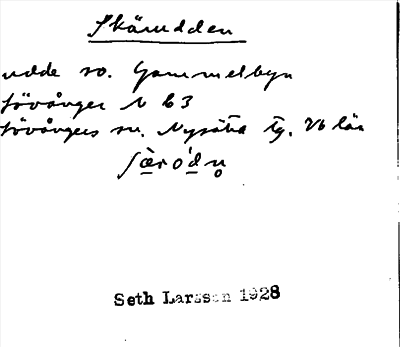 Skärudden
udde so. Gammelbyn
Lövånger N b 3
Lövångers sn. Nysätra tg. Vb län
Seth Larsson 1928